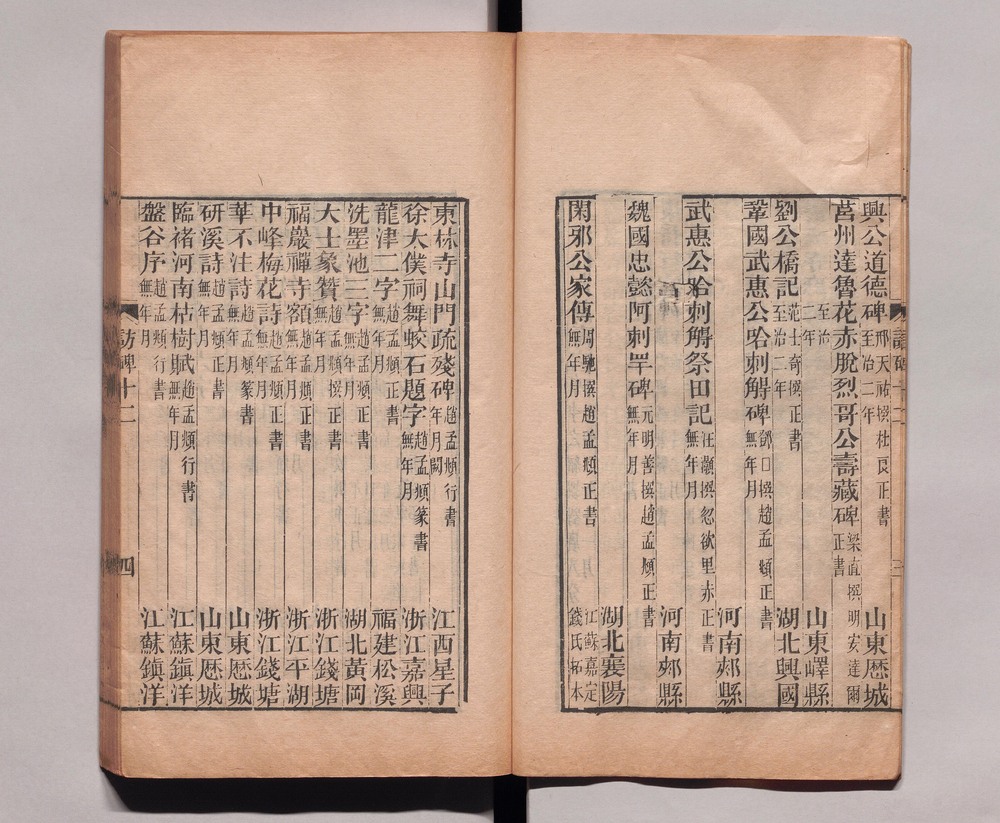 興公道德碑 邢天祐撰杜良正書 至治二年 山東歷城
莒州達魯花赤脫烈哥公壽藏碑 梁直撰明安達爾正書 至治二年 山東嶧縣
劉公橋記 范士奇撰正書 至治二年 湖北興國
鞏國武惠公哈剌䚟碑 鄧□撰趙孟頫正書 無年月 河南郟縣
武惠公哈剌䚟祭田記 汪灝撰忽欲里赤正書 無年月 河南郟縣
魏國忠懿阿刺罕碑 元明善撰趙孟頫正書 無年月 湖北襄陽
閑邪公家傳 周馳撰趙孟頫正書 無年月 江蘇嘉定錢氏拓本
東林寺山門疏殘碑 趙孟頫行書 年月闕 江西星子
徐大僕祠舞蛟石題字 趙孟頫篆書 無年月 浙江嘉興
龍津二字 趙孟頫正書 無年月 福建松溪
洗墨池三字 趙孟頫正書 無年月 湖北黃岡
大士象贊 趙孟頫撰正書 無年月 浙江錢塘
福嚴禪寺額 趙孟頫正書 無年月 浙江平湖
中峰梅花詩 趙孟頫正書 無年月 浙江錢塘
華不注詩 趙孟頫篆書 無年月 山東歷城
研溪詩 趙孟頫正書 無年月 山東歷城
臨褚河南枯樹賦 趙孟頫行書 無年月 江蘇鎮洋
盤谷序 趙孟頫行書 無年月 江蘇鎮洋
訪碑十二 四